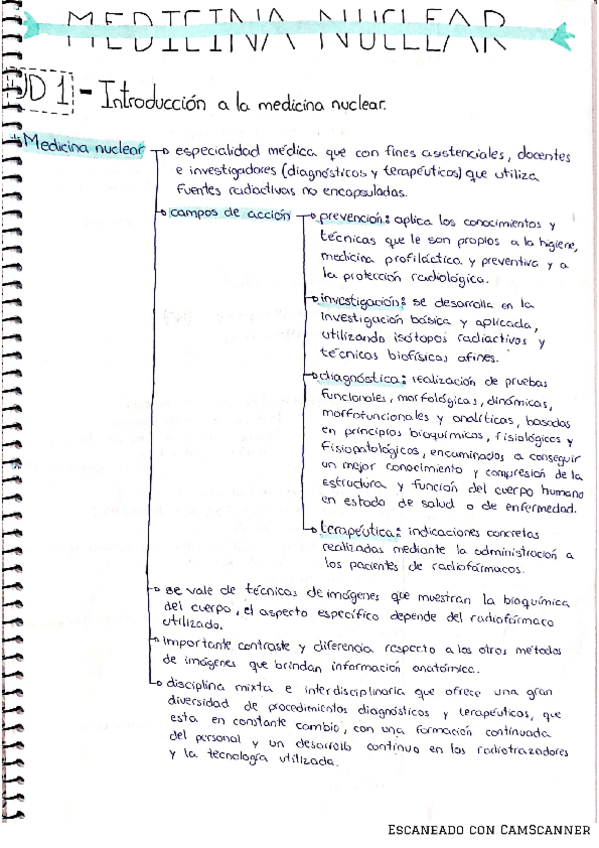 MEDICINA NUCLEAR
UD 1 - Introducción a la medicina nuclear.
* Medicina nuclear → especialidad médica que con fines asistenciales, docentes
e investigadores (diagnósticos y terapéuticos) que utiliza
fuentes radiactivas no encapsuladas.
→ campos de acción → prevención: aplica los conocimientos y
técnicas que le son propios a la higiene,
medicina profiláctica y preventiva y a
la protección radiológica.
→ investigación: se desarrolla en la
investigación básica y aplicada,
utilizando isótopos radiactivos y
técnicas biofísicas afines.
→ diagnóstica: realización de pruebas
funcionales, morfológicas, dinámicas,
morfofuncionales y analíticas, basadas
en principios bioquímicos, fisiológicos y
fisiopatológicos, encaminados a conseguir
un mejor conocimiento y compresión de la
estructura y función del cuerpo humano
en estado de salud o de enfermedad.
→ terapéutica: indicaciones concretas
realizadas mediante la administración a
los pacientes de radiofármacos.
→ se vale de técnicas de imágenes que muestran la bioquímica
del cuerpo, el aspecto específico depende del radiofármaco
utilizado.
→ importante contraste y diferencia respecto a los otros métodos
de imágenes que brindan información anatómica.
→ disciplina mixta e interdisciplinaria que ofrece una gran
diversidad de procedimientos diagnósticos y terapéuticos, que
esta en constante cambio, con una formación continuada
del personal y un desarrollo continuo en los radiotrazadores
y la tecnología utilizada.
ESCANEADO CON CAMSCANNER